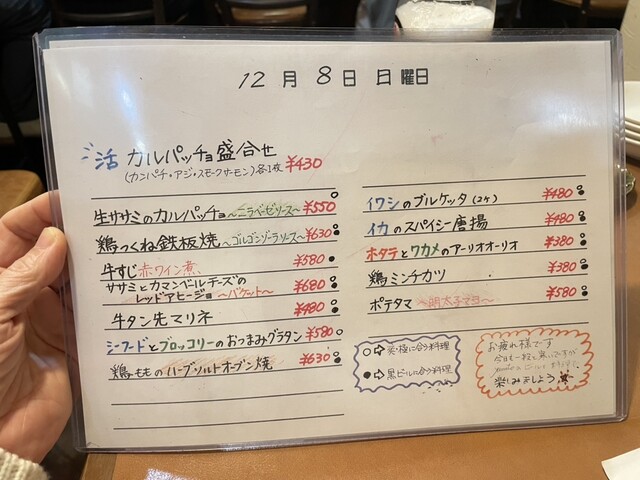 12月8日日曜日
活 カルパッチョ盛合せ
(カンパチ・アジ・スモークサーモン)各1枚 ¥430
生ササミのカルパッチョ～ニラベーゼソース～¥550
鶏つくね鉄板焼～ゴルゴンゾーラソース～¥630
牛すじ赤ワイン煮 ¥580
ササミとカマンベールチーズの
レッドアヒージョ～バケット～ ¥680
牛タン先マリネ ¥480
シーフードとブロッコリーのおつまみグラタン ¥580
鶏もものハーブソルトオーブン焼 ¥630
イワシのブルケッタ(2ヶ) ¥480
イカのスパイシー唐揚 ¥480
ホタテとワカメのアーリオオーリオ ¥380
鶏ミンチカツ ¥380
ポテタマ ～明太子マヨ～ ¥580
○⇨ に合う料理
●⇨黒ビールに合う料理
お疲れ様です
今日も一段と寒いですが
楽しみましょう